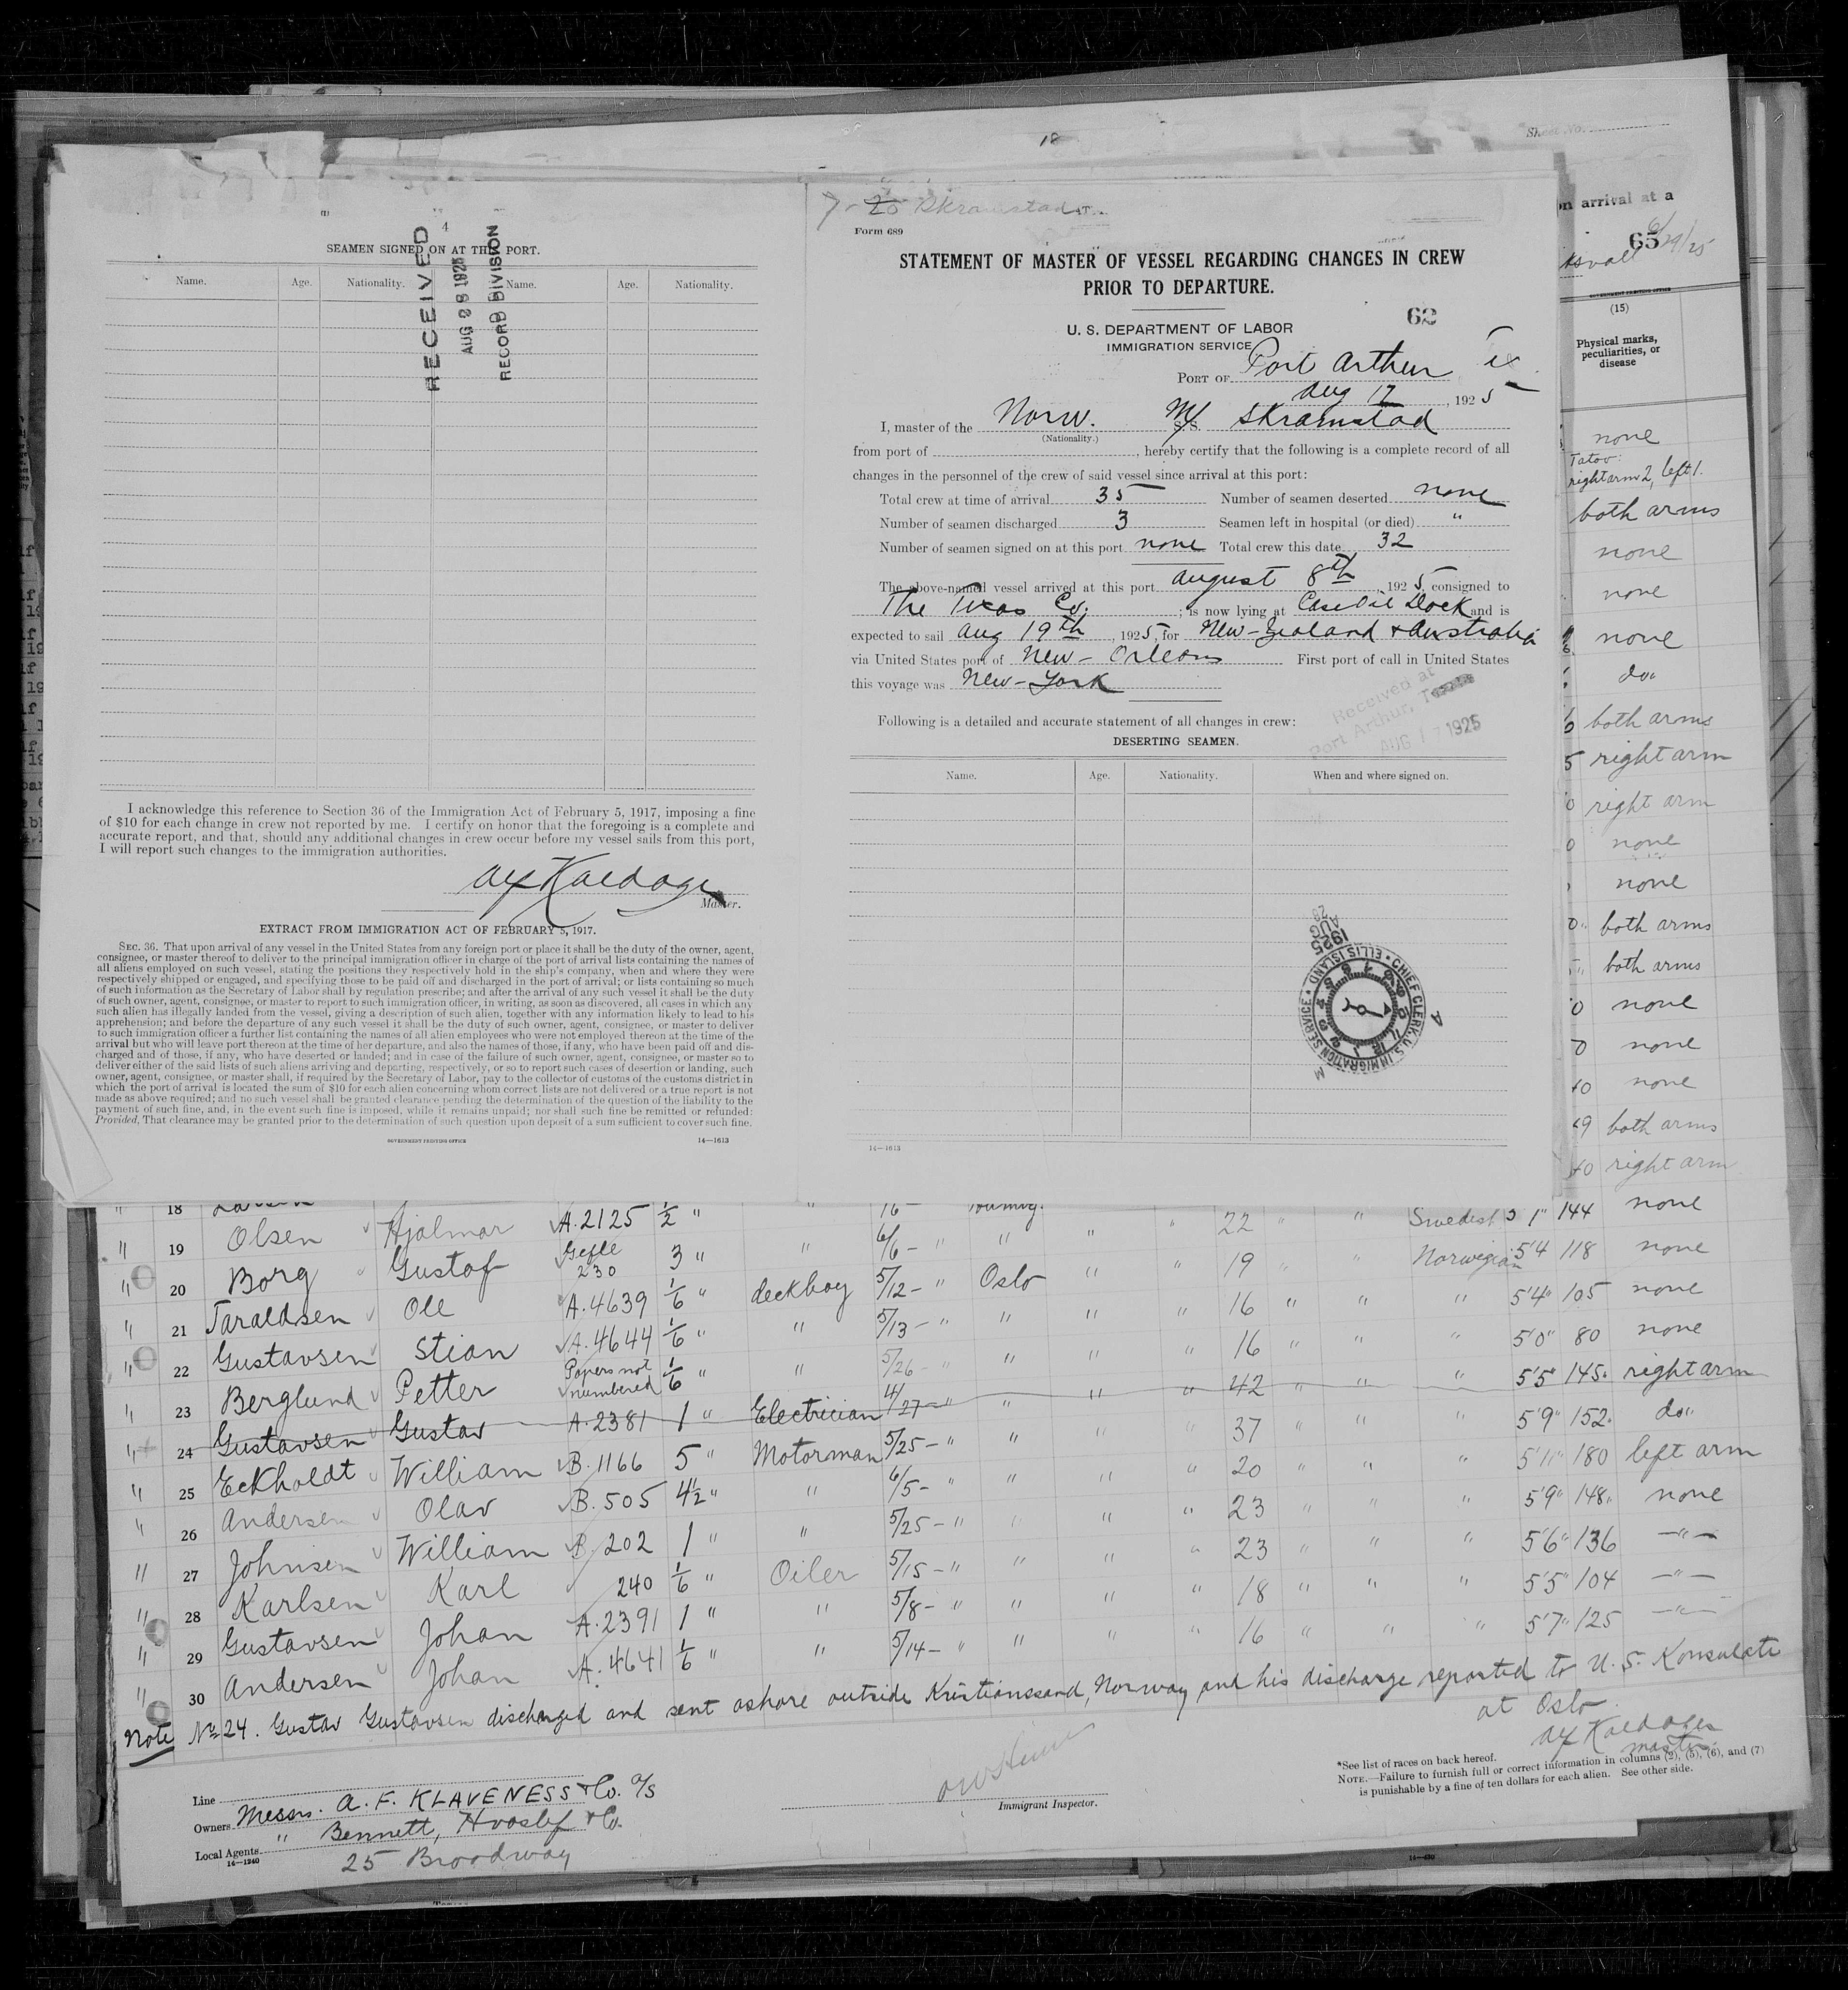 18
Sheet No.
on arrival at a
65
6/29/25
GOVERNMENT PRINTING OFFICE
(15)
Physical marks,
peculiarities, or
disease
none
Tatov:
right arm 2, left 1.
both arms
none
none
none
do"
both arms
right arm
right arm
none
none
both arms
both arms
none
none
none
both arms
right arm
(1)
4
SEAMEN SIGNED ON AT THIS PORT.
Name. Age. Nationality. Name. Age. Nationality.
RECEIVED
AUG 28 1925
RECORD DIVISION
I acknowledge this reference to Section 36 of the Immigration Act of February 5, 1917, imposing a fine
of $10 for each change in crew not reported by me. I certify on honor that the foregoing is a complete and
accurate report, and that, should any additional changes in crew occur before my vessel sails from this port,
I will report such changes to the immigration authorities.
Master.
EXTRACT FROM IMMIGRATION ACT OF FEBRUARY 5, 1917.
SEC. 36. That upon arrival of any vessel in the United States from any foreign port or place it shall be the duty of the owner, agent,
consignee, or master thereof to deliver to the principal immigration officer in charge of the port of arrival lists containing the names of
all aliens employed on such vessel, stating the positions they respectively hold in the ship's company, when and where they were
respectively shipped or engaged, and specifying those to be paid off and discharged in the port of arrival; or lists containing so much
of such information as the Secretary of Labor shall by regulation prescribe; and after the arrival of any such vessel it shall be the duty
of such owner, agent, consignee, or master to report to such immigration officer, in writing, as soon as discovered, all cases in which any
such alien has illegally landed from the vessel, giving a description of such alien, together with any information likely to lead to his
apprehension; and before the departure of any such vessel it shall be the duty of such owner, agent, consignee, or master to deliver
to such immigration officer a further list containing the names of all alien employees who were not employed thereon at the time of the
arrival but who will leave port thereon at the time of her departure, and also the names of those, if any, who have been paid off and dis-
charged and of those, if any, who have deserted or landed; and in case of the failure of such owner, agent, consignee, or master so to
deliver either of the said lists of such aliens arriving and departing, respectively, or so to report such cases of desertion or landing, such
owner, agent, consignee, or master shall, if required by the Secretary of Labor, pay to the collector of customs of the customs district in
which the port of arrival is located the sum of $10 for each alien concerning whom correct lists are not delivered or a true report is not
made as above required; and no such vessel shall be granted clearance pending the determination of the question of the liability to the
payment of such fine, and, in the event such fine is imposed, while it remains unpaid; nor shall such fine be remitted or refunded:
Provided, That clearance may be granted prior to the determination of such question upon deposit of a sum sufficient to cover such fine.
GOVERNMENT PRINTING OFFICE 14—1613
Skramstad
Form 689
STATEMENT OF MASTER OF VESSEL REGARDING CHANGES IN CREW
PRIOR TO DEPARTURE.
62
U. S. DEPARTMENT OF LABOR
IMMIGRATION SERVICE
PORT OF Port Arthur
Aug 17, 1925
I, master of the Norw. M/S.S. Skramstad
(Nationality.)
from port of , hereby certify that the following is a complete record of all
changes in the personnel of the crew of said vessel since arrival at this port:
Total crew at time of arrival 35 Number of seamen deserted none
Number of seamen discharged 3 Seamen left in hospital (or died) "
Number of seamen signed on at this port none Total crew this date 32
The above-named vessel arrived at this port August 8th, 1925, consigned to
The Texas Co.; is now lying at Case Oil Dock and is
expected to sail Aug 19th, 1925, for New-Zealand & Australia
via United States port of New-Orleans First port of call in United States
this voyage was New-York
Received at
Port Arthur, Texas
AUG 17 1925
Following is a detailed and accurate statement of all changes in crew:
DESERTING SEAMEN.
Name. Age. Nationality. When and where signed on.
AUG 28 1925
CHIEF CLERK, U.S. IMMIGRATION SERVICE · ELLIS ISLAND
14—1613
" 18 Larsen
" 19 Olsen Hjalmar A.2125 1/2 " " 6/6 - " " " " 22 " " Swedish 144 none
" 20 Borg Gustaf Gefle 230 3 " " 19 " Norwegian 5'4 118 none
" 21 Taraldsen Ole A.4639 1/6 " deckboy 5/12 - " Oslo " " 16 " " " 5'4" 105 none
" 22 Gustavsen Stian A.4644 1/6 " " 5/13 - " " " " 16 " " " 5'0" 80 none
" 23 Berglund Petter Papers not numbered 1/6 " " 5/26 - " " " " 42 " " " 5'5" 145. right arm
" 24 Gustavsen Gustav A.2381 1 " Electrician 4/27 - " " " " 37 " " " 5'9" 152. do"
" 25 Eckholdt William B.1166 5 " Motorman 5/25 - " " " " 20 " " " 5'11" 180 left arm
" 26 Andersen Olav B.505 4 1/2 " " 6/5 - " " " " 23 " " " 5'9" 148" none
" 27 Johnsen William B.202 1 " " 5/25 - " " " " 23 " " " 5'6" 136 —"—
" 28 Karlsen Karl 240 1/6 " Oiler 5/15 - " " " " 18 " " " 5'5" 104 —"—
" 29 Gustavsen Johan A.2391 1 " " 5/8 - " " " " 16 " " " 5'7" 125 —"—
" 30 Andersen Johan A.4641 1/6 " " 5/14 - " "
Note No 24. Gustav Gustavsen discharged and sent ashore outside Kristianssand, Norway and his discharge reported to U.S. Konsulate
at Oslo
master.
*See list of races on back hereof.
NOTE.—Failure to furnish full or correct information in columns (2), (5), (6), and (7)
is punishable by a fine of ten dollars for each alien. See other side.
Line
Owners Messrs. A. F. KLAVENESS & Co. A/S
Local Agents " Bennett, Hvoslef & Co.
25 Broadway
14—1240
Immigrant Inspector.